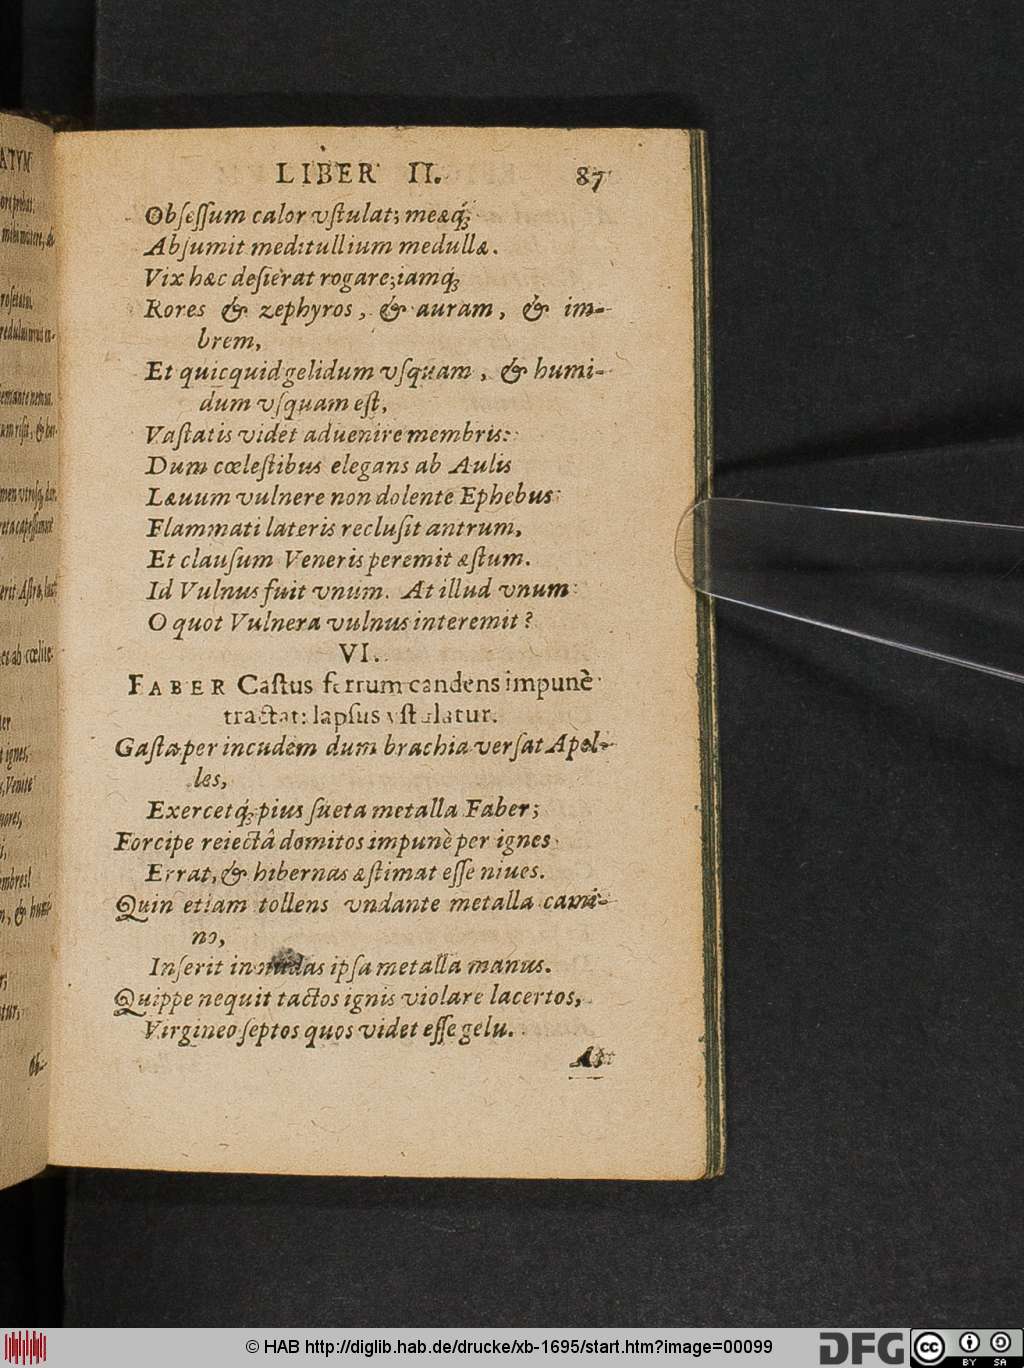 LIBER II. 87
Obſeſſum calor vſtulat; meæq́;
Abſumit meditullium medullæ.
Vix hæc deſierat rogare; iamq́;
Rores & zephyros, & auram, & im-
brem,
Et quicquid gelidum vſquam, & humi-
dum vſquam eſt,
Vaſtatis videt aduenire membris:
Dum cœleſtibus elegans ab Aulis
Læuum vulnere non dolente Ephebus
Flammati lateris recluſit antrum,
Et clauſum Veneris peremit æſtum.
Id Vulnus fuit vnum. At illud vnum
O quot Vulnera vulnus interemit?
VI.
FABER Caſtus ferrum candens impunè
tractat: lapſus vſtulatur.
Gaſtæ per incudem dum brachia verſat Apel-
les,
Exercetq́; pius ſueta metalla Faber;
Forcipe reiectâ domitos impunè per ignes
Errat, & hibernas æſtimat eſſe niues.
Quin etiam tollens vndante metalla cami-
no,
Inſerit innudas ipſa metalla manus.
Quippe nequit tactos ignis violare lacertos,
Virgineo ſeptos quos videt eſſe gelu.
© HAB http://diglib.hab.de/drucke/xb-1695/start.htm?image=00099
DFG
cc BY SA